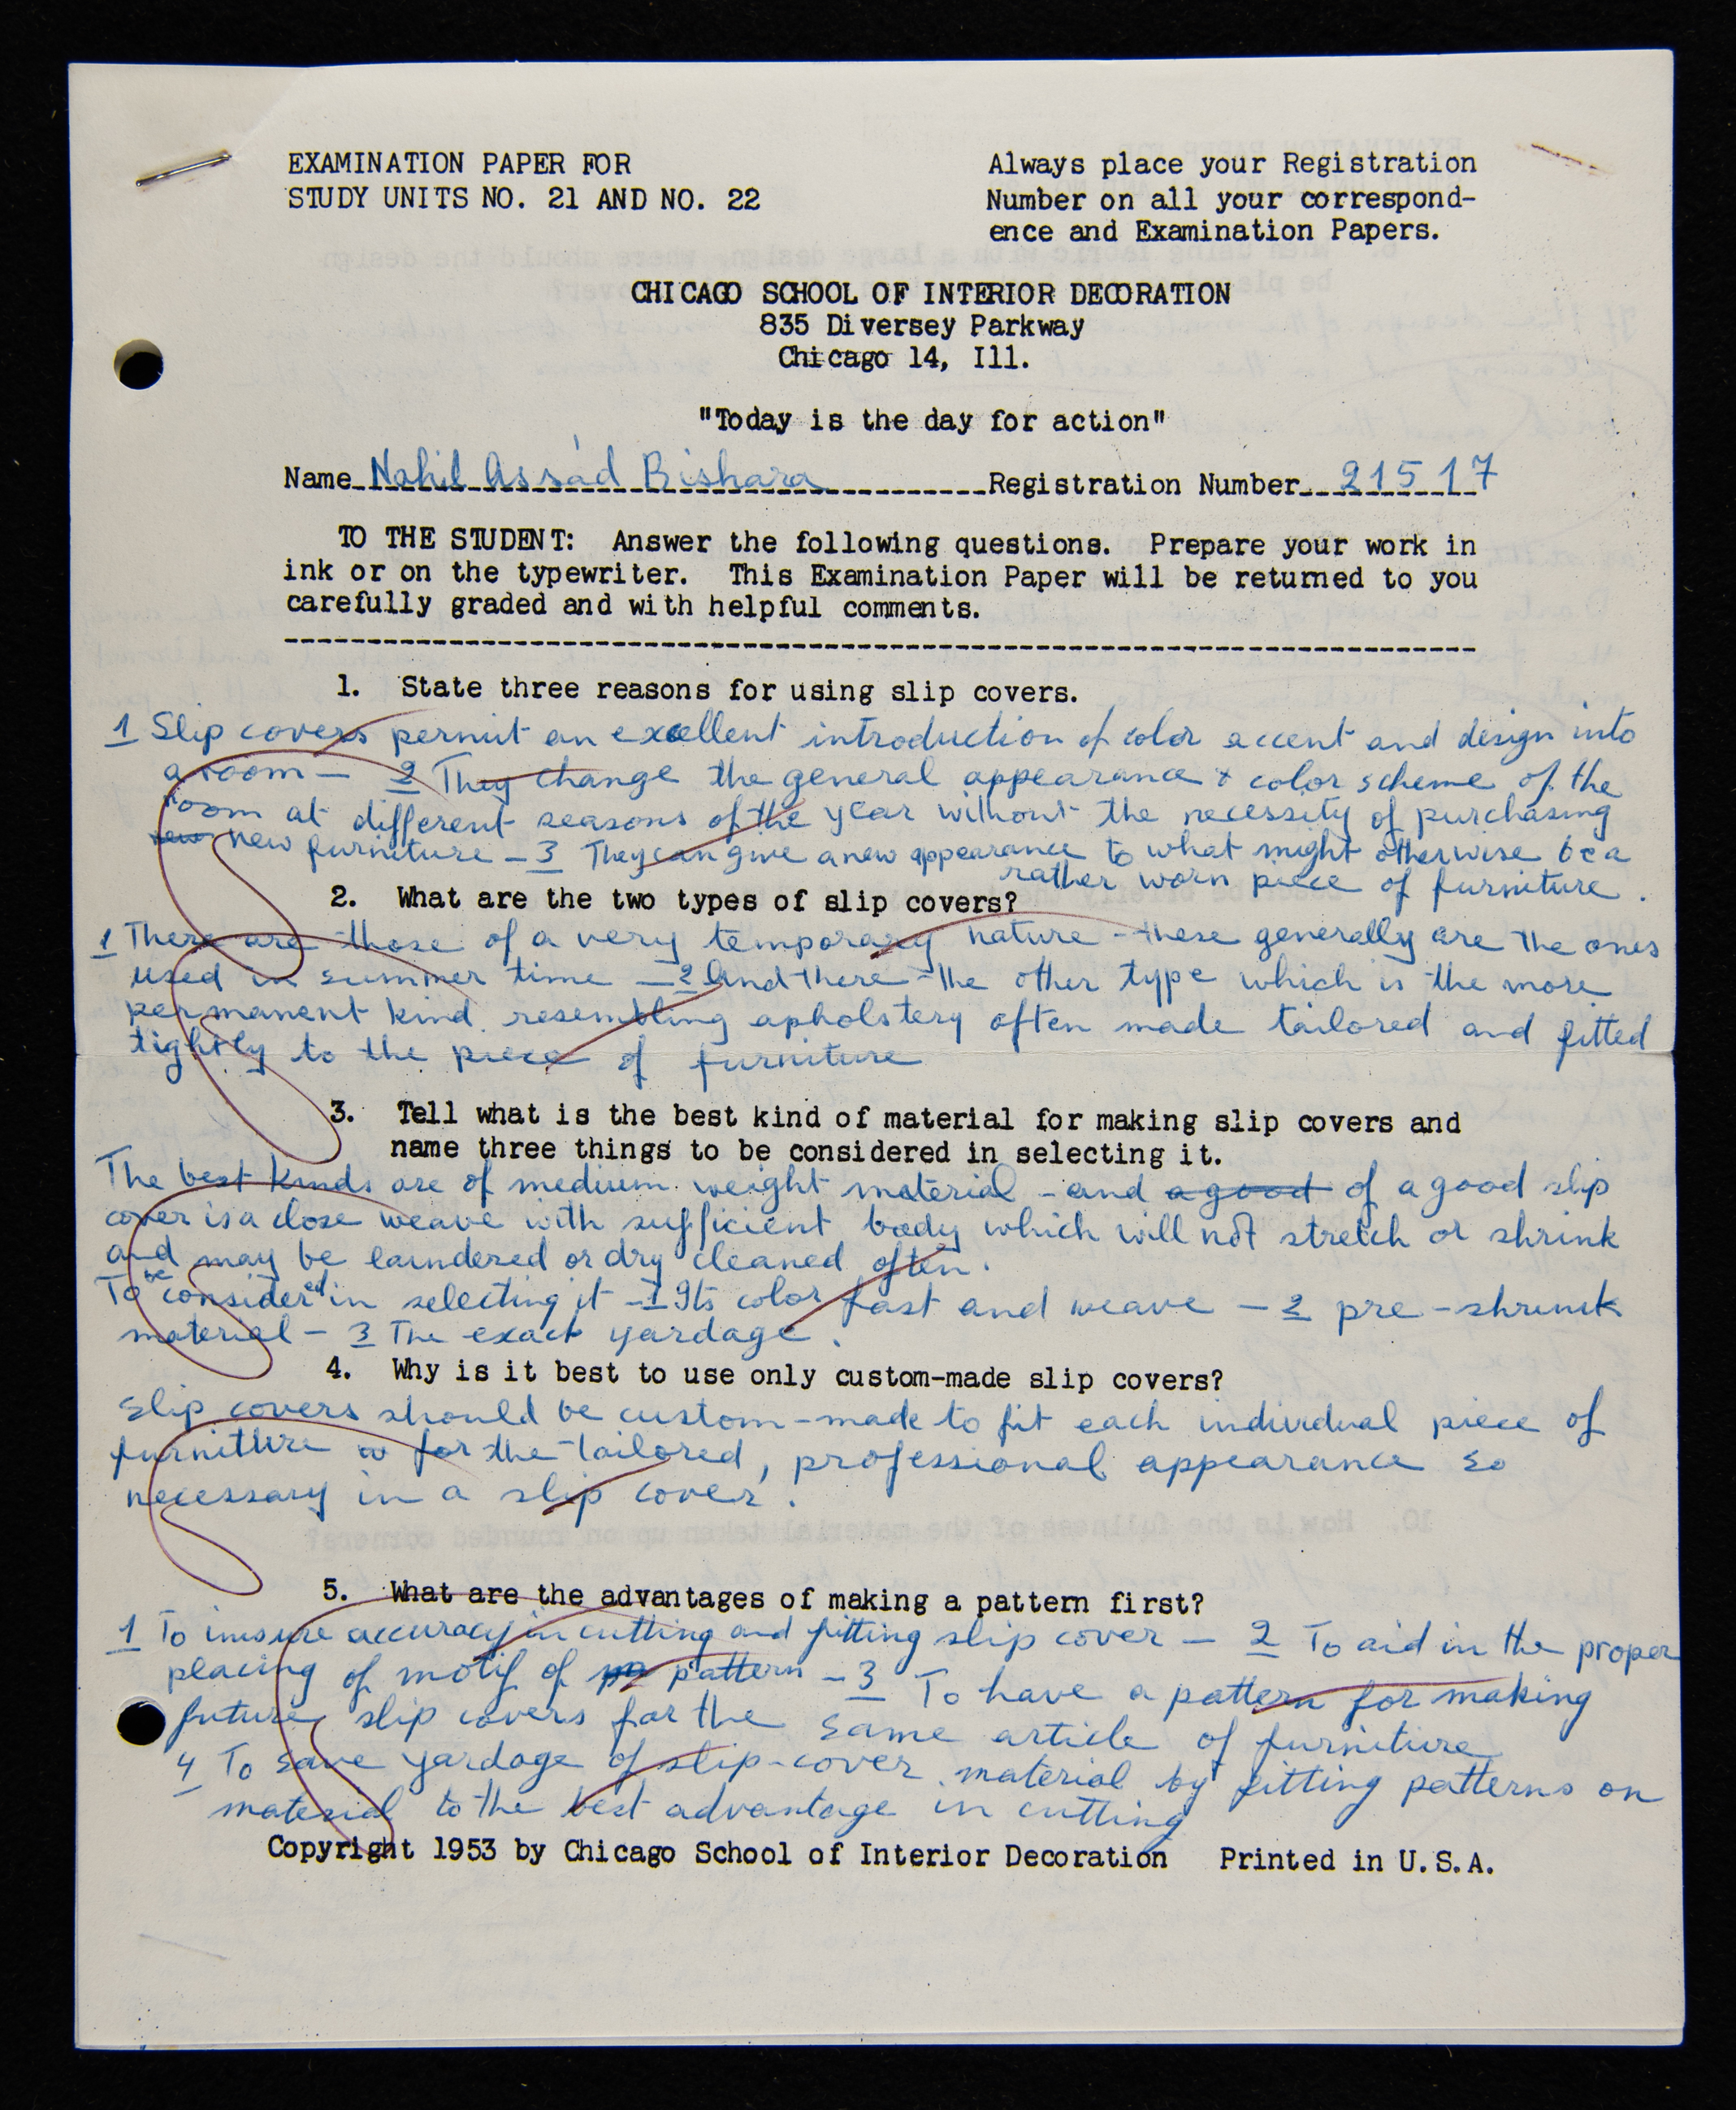 EXAMINATION PAPER FOR
STUDY UNITS NO. 21 AND NO. 22
Always place your Registration
Number on all your correspond-
ence and Examination Papers.
CHICAGO SCHOOL OF INTERIOR DECORATION
835 Diversey Parkway
Chicago 14, Ill.
"Today is the day for action"
Name Nahil Assád Bishara Registration Number 21517
TO THE STUDENT: Answer the following questions. Prepare your work in
ink or on the typewriter. This Examination Paper will be returned to you
carefully graded and with helpful comments.
1. State three reasons for using slip covers.
1 Slip covers permit an excellent introduction of color accent and design into
a room — 2 They change the general appearance & color scheme of the
room at different seasons of the year without the necessity of purchasing
new new furniture — 3 They can give a new appearance to what might otherwise be a
rather worn piece of furniture.
2. What are the two types of slip covers?
1 There are those of a very temporary nature - these generally are the ones
used in summer time — 2 And there the other type which is the more
permanent kind resembling apholstery often made tailored and fitted
tightly to the piece of furniture
3. Tell what is the best kind of material for making slip covers and
name three things to be considered in selecting it.
The best kinds are of medium weight material - and a good of a good slip
cover is a close weave with sufficient body which will not stretch or shrink
and may be laundered or dry cleaned often.
To be considered in selecting it - 1 Its color fast and weave — 2 pre-shrunk
material — 3 The exact yardage.
4. Why is it best to use only custom-made slip covers?
Slip covers should be custom-made to fit each individual piece of
furniture for the tailored, professional appearance so
necessary in a slip cover.
5. What are the advantages of making a pattern first?
1 To insure accuracy in cutting and fitting slip cover — 2 To aid in the proper
placing of motif of pattern — 3 To have a pattern for making
future slip covers for the same article of furniture
4 To save yardage of slip-cover material by fitting patterns on
material to the best advantage in cutting
Copyright 1953 by Chicago School of Interior Decoration Printed in U.S.A.